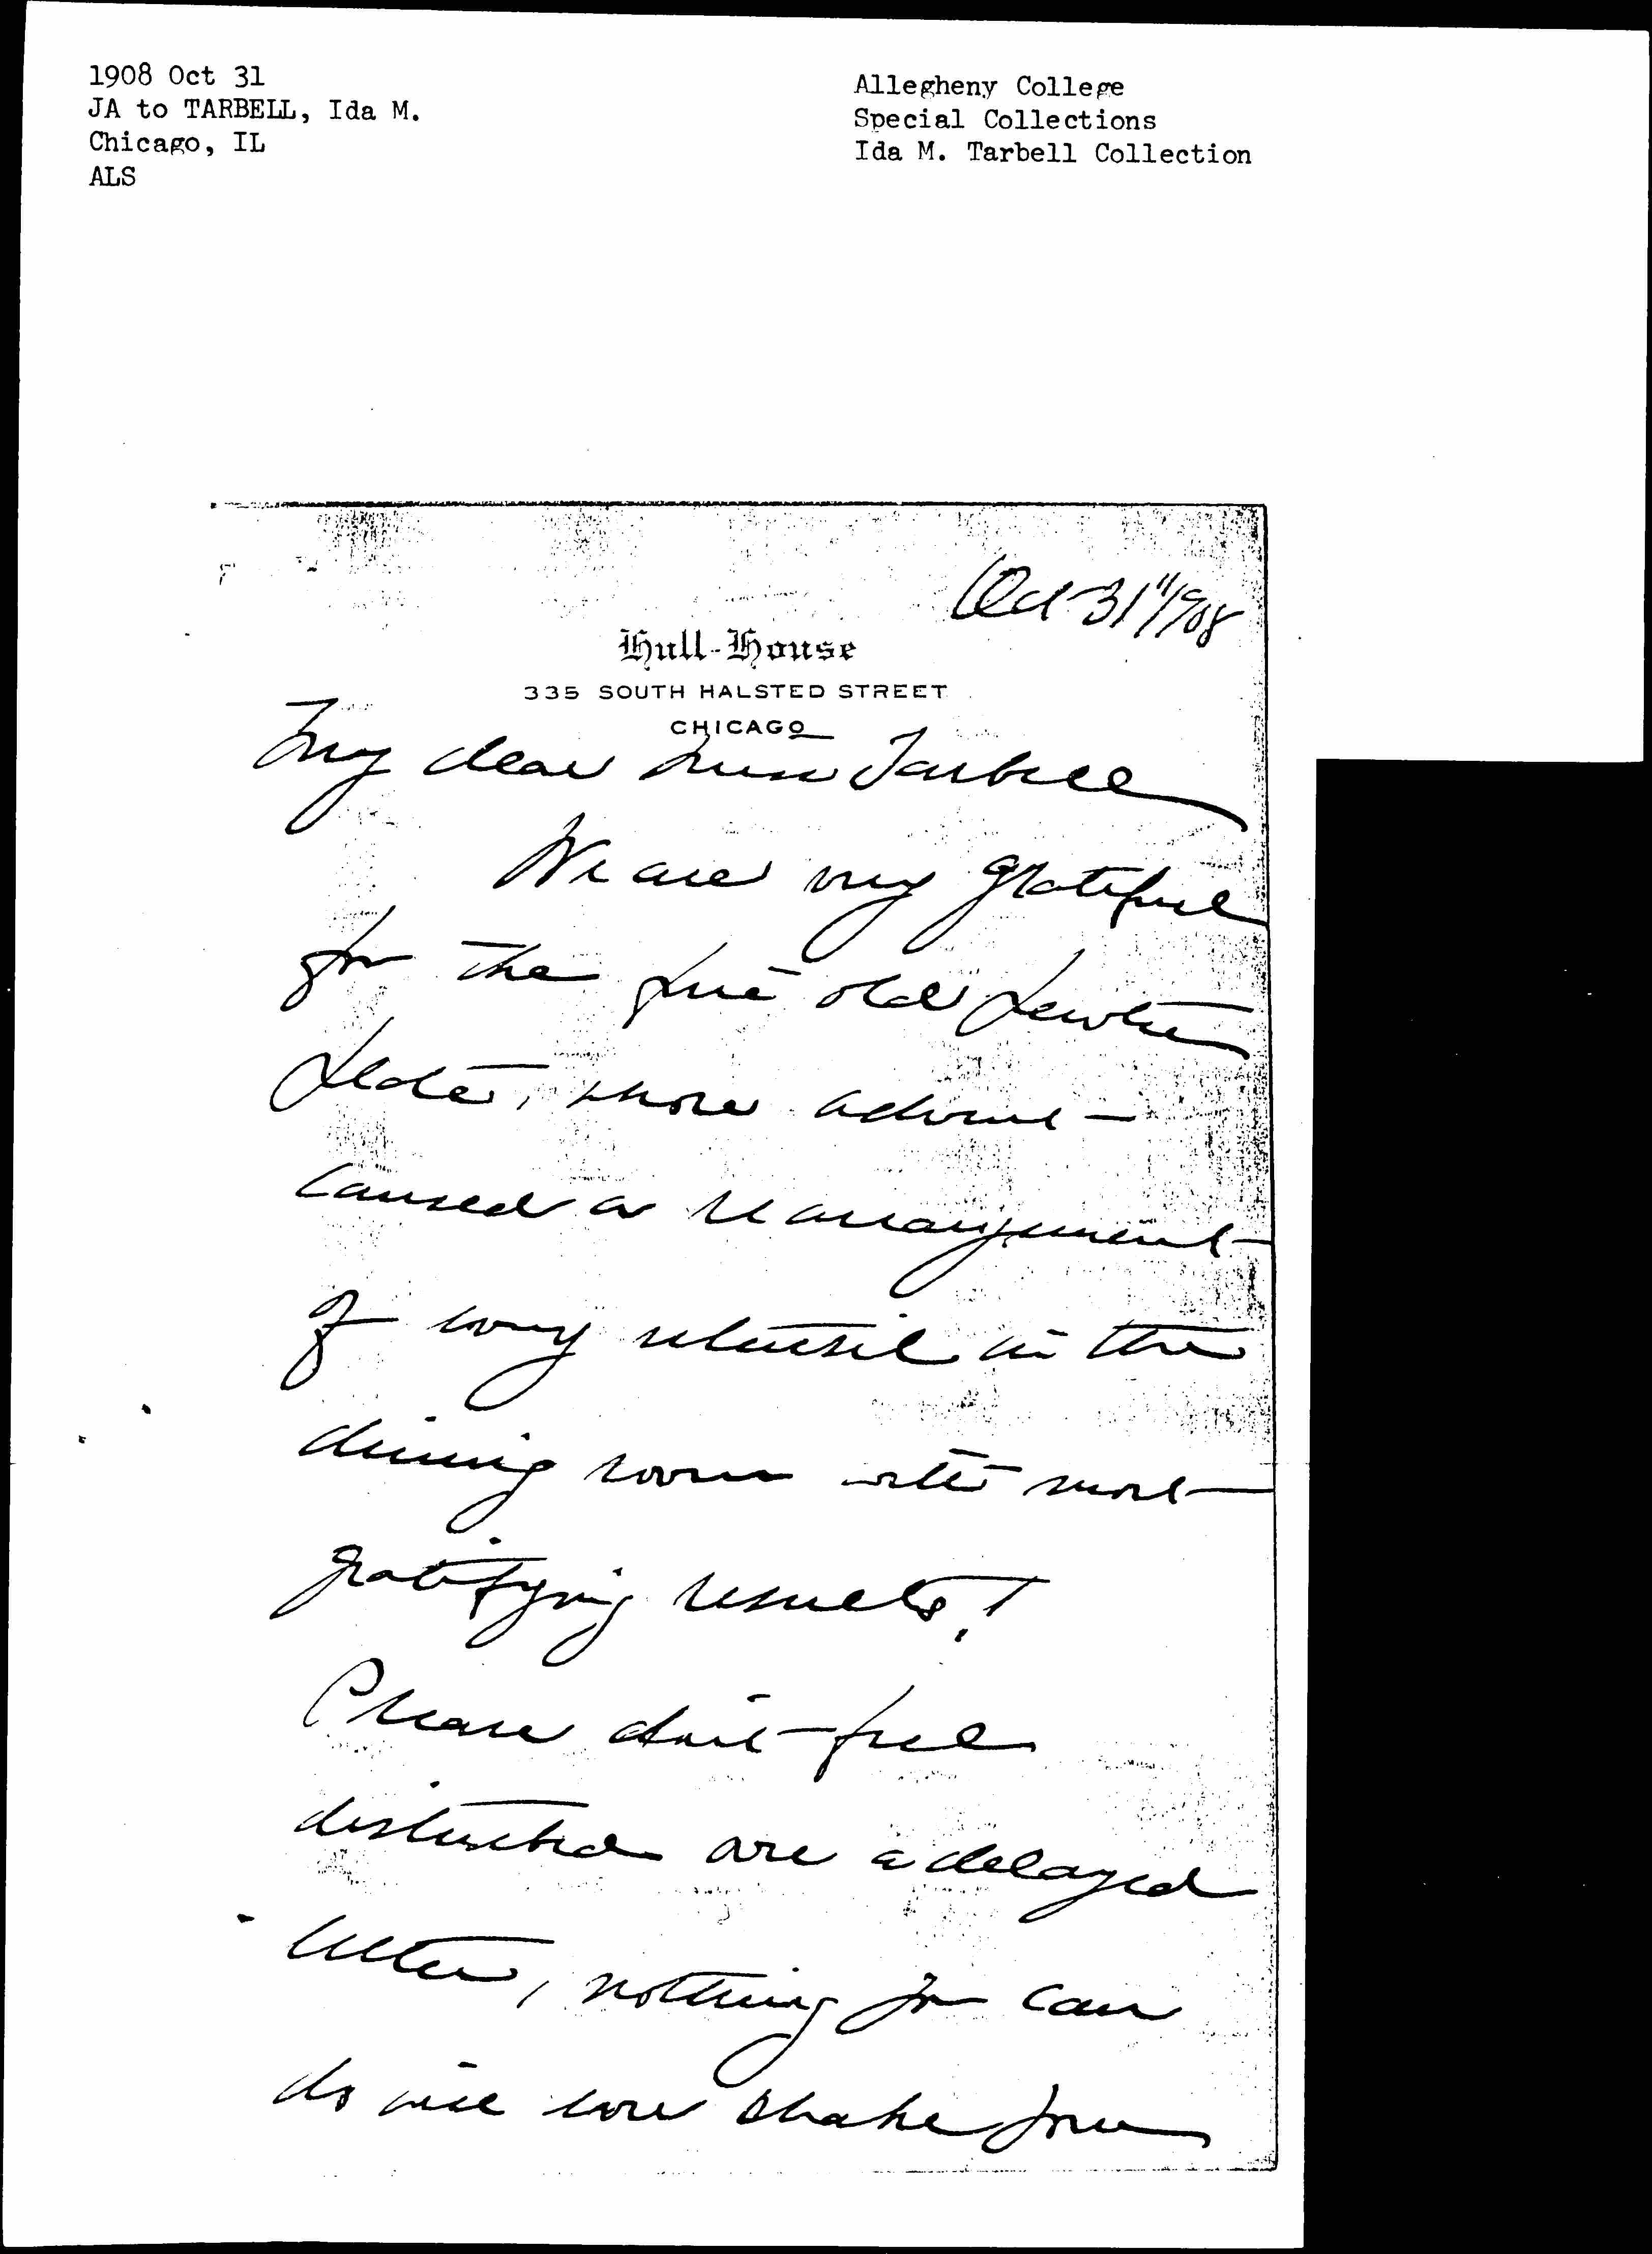 1908 Oct 31
JA to TARBELL, Ida M.
Chicago, IL
ALS
Allegheny College
Special Collections
Ida M. Tarbell Collection
Oct 31" 1908
Hull-House
335 SOUTH HALSTED STREET
CHICAGO
My dear Miss Tarbell
We are very grateful
for the fine old pewter
plate, whose advent
caused a rearrangement
of every utensil in the
dining room with most
gratifying results!
Please don't feel
disturbed over a delayed
letter, nothing you can
do will ever shake your